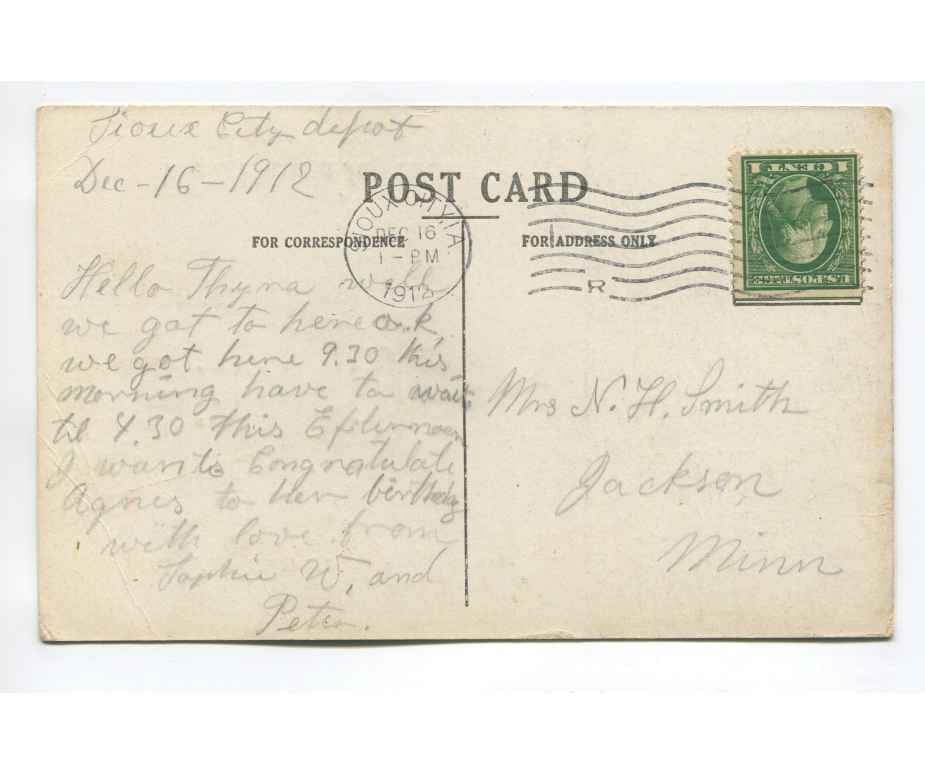 Sioux City depot
Dec-16-1912
POST CARD
FOR CORRESPONDENCE
FOR ADDRESS ONLY
SIOUX CITY, IA.
DEC 16
1-PM
1912
R
1 CENT 1
U.S. POSTAGE
Hello Thyra well
we got to here o.k.
we got here 9.30 this
morning have to wait
til 4.30 this Efternoon
I want to Congratulate
Agnes to her birthday
with love from
Sophie W, and
Peter.
Mrs N. H. Smith
Jackson,
Minn